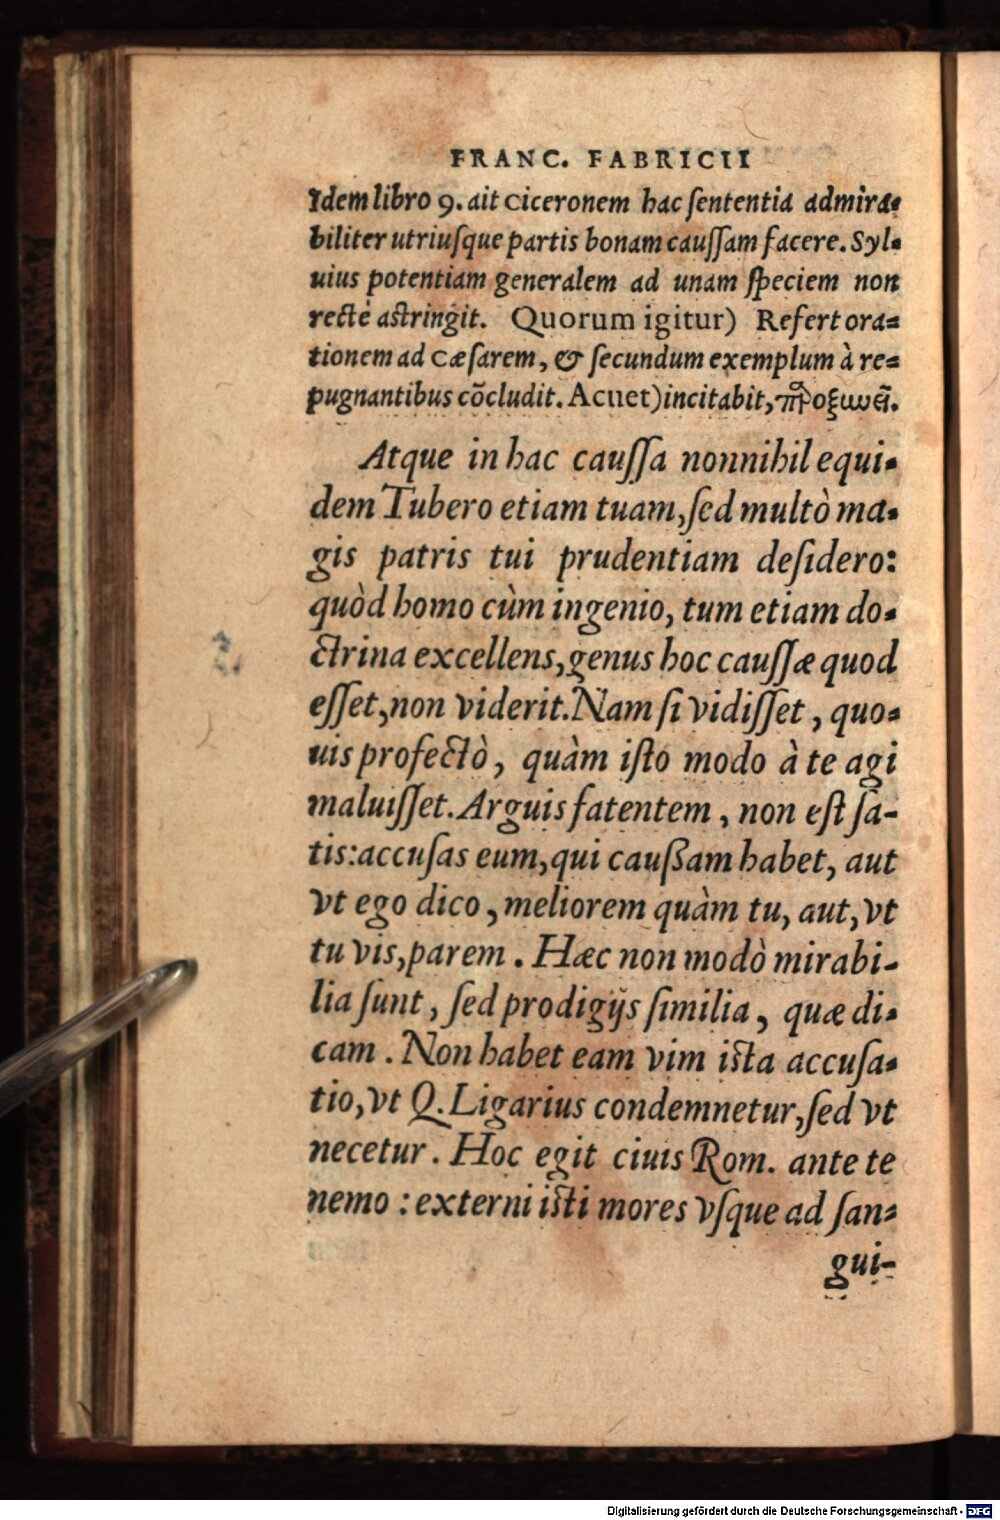 FRANC. FABRICII
Idem libro 9. ait Ciceronem hac ſententia admira-
biliter utriuſque partis bonam cauſſam facere. Syl-
uius potentiam generalem ad unam ſpeciem non
rectè aſtringit. Quorum igitur) Refert ora-
tionem ad Cæſarem, & ſecundum exemplum à re-
pugnantibus cõcludit. Acuet) incitabit,
Atque in hac cauſſa nonnihil equi-
dem Tubero etiam tuam, ſed multò ma-
gis patris tui prudentiam deſidero:
quòd homo cùm ingenio, tum etiam do-
ctrina excellens, genus hoc cauſſæ quod
eſſet, non viderit. Nam ſi vidiſſet, quo-
uis profectò, quàm iſto modo à te agi
maluiſſet. Arguis fatentem, non eſt ſa-
tis: accuſas eum, qui caußam habet, aut
vt ego dico, meliorem quàm tu, aut, vt
tu vis, parem. Hæc non modò mirabi-
lia ſunt, ſed prodigijs ſimilia, quæ di-
cam. Non habet eam vim iſta accuſa-
tio, vt Q. Ligarius condemnetur, ſed vt
necetur. Hoc egit ciuis Rom. ante te
nemo: externi iſti mores vſque ad ſan-
gui-
Digitalisierung gefördert durch die Deutsche Forschungsgemeinschaft - DFG